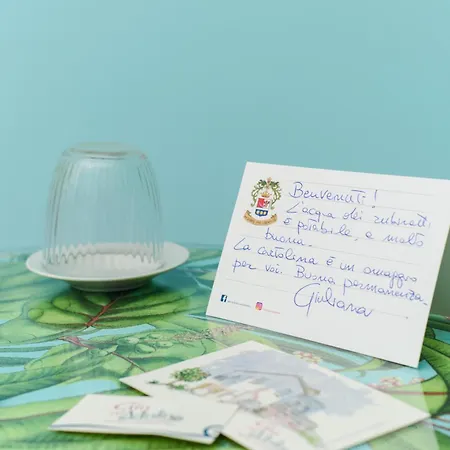 Benvenuti!
L'acqua dei rubinetti
è potabile, e molto
buona.
La cartolina è un omaggio
per voi. Buona permanenza.
Giuliana